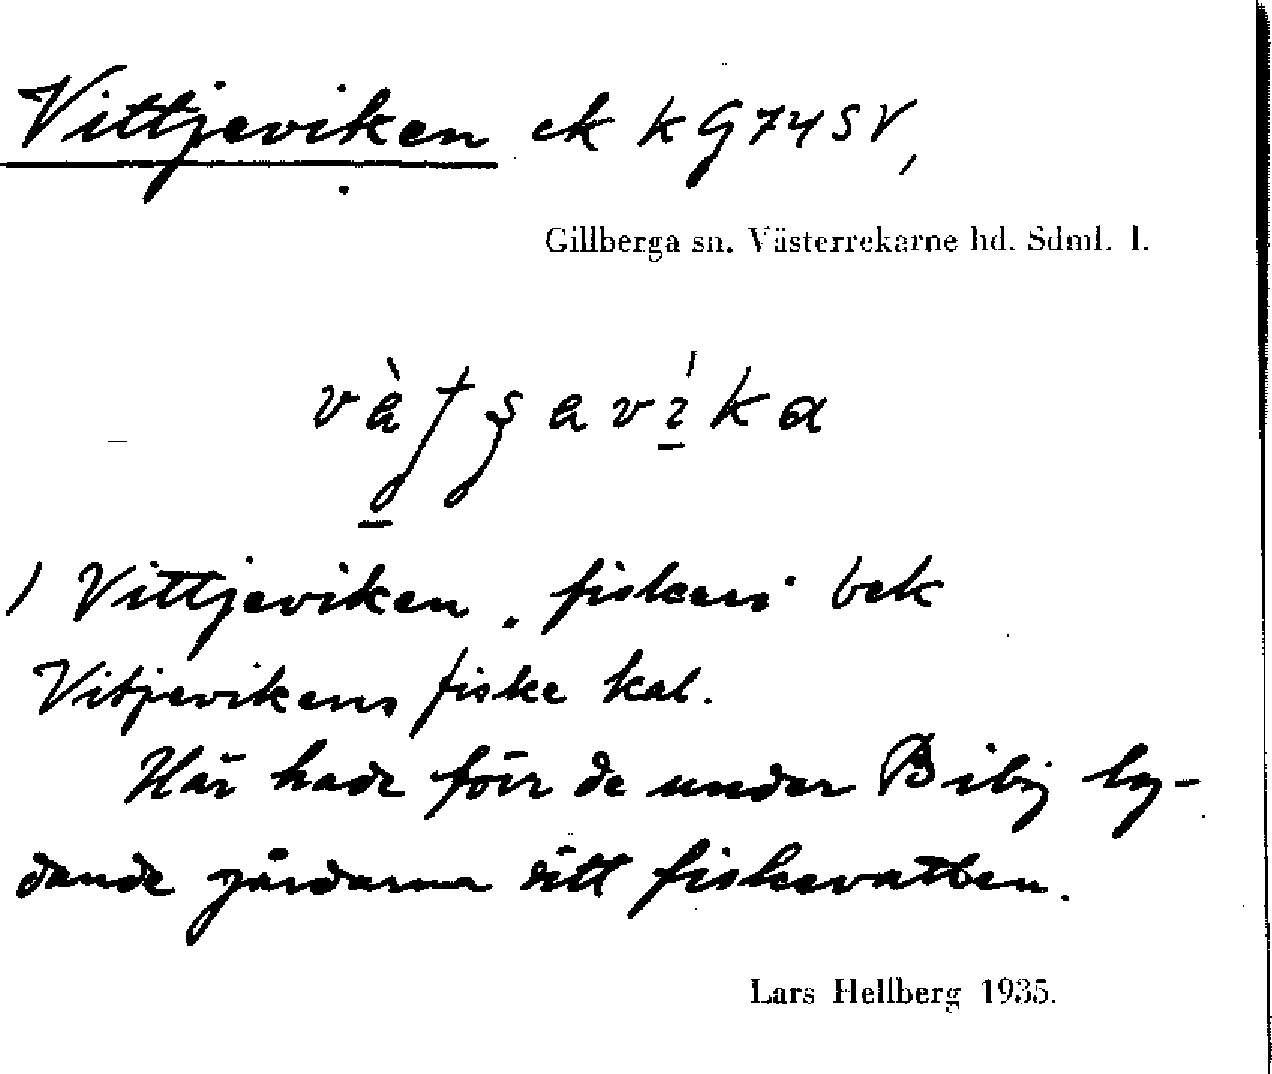 Vittjeviken ek k G 74 SV,
Gillberga sn. Västerrekarne hd. Sdml. l.
1) Vittjeviken, fiskeri bek
Vitjevikens fiske kal.
Här hade förr de under Biby ly-
dande gårdarna sitt fiskevatten.
Lars Hellberg 1935.